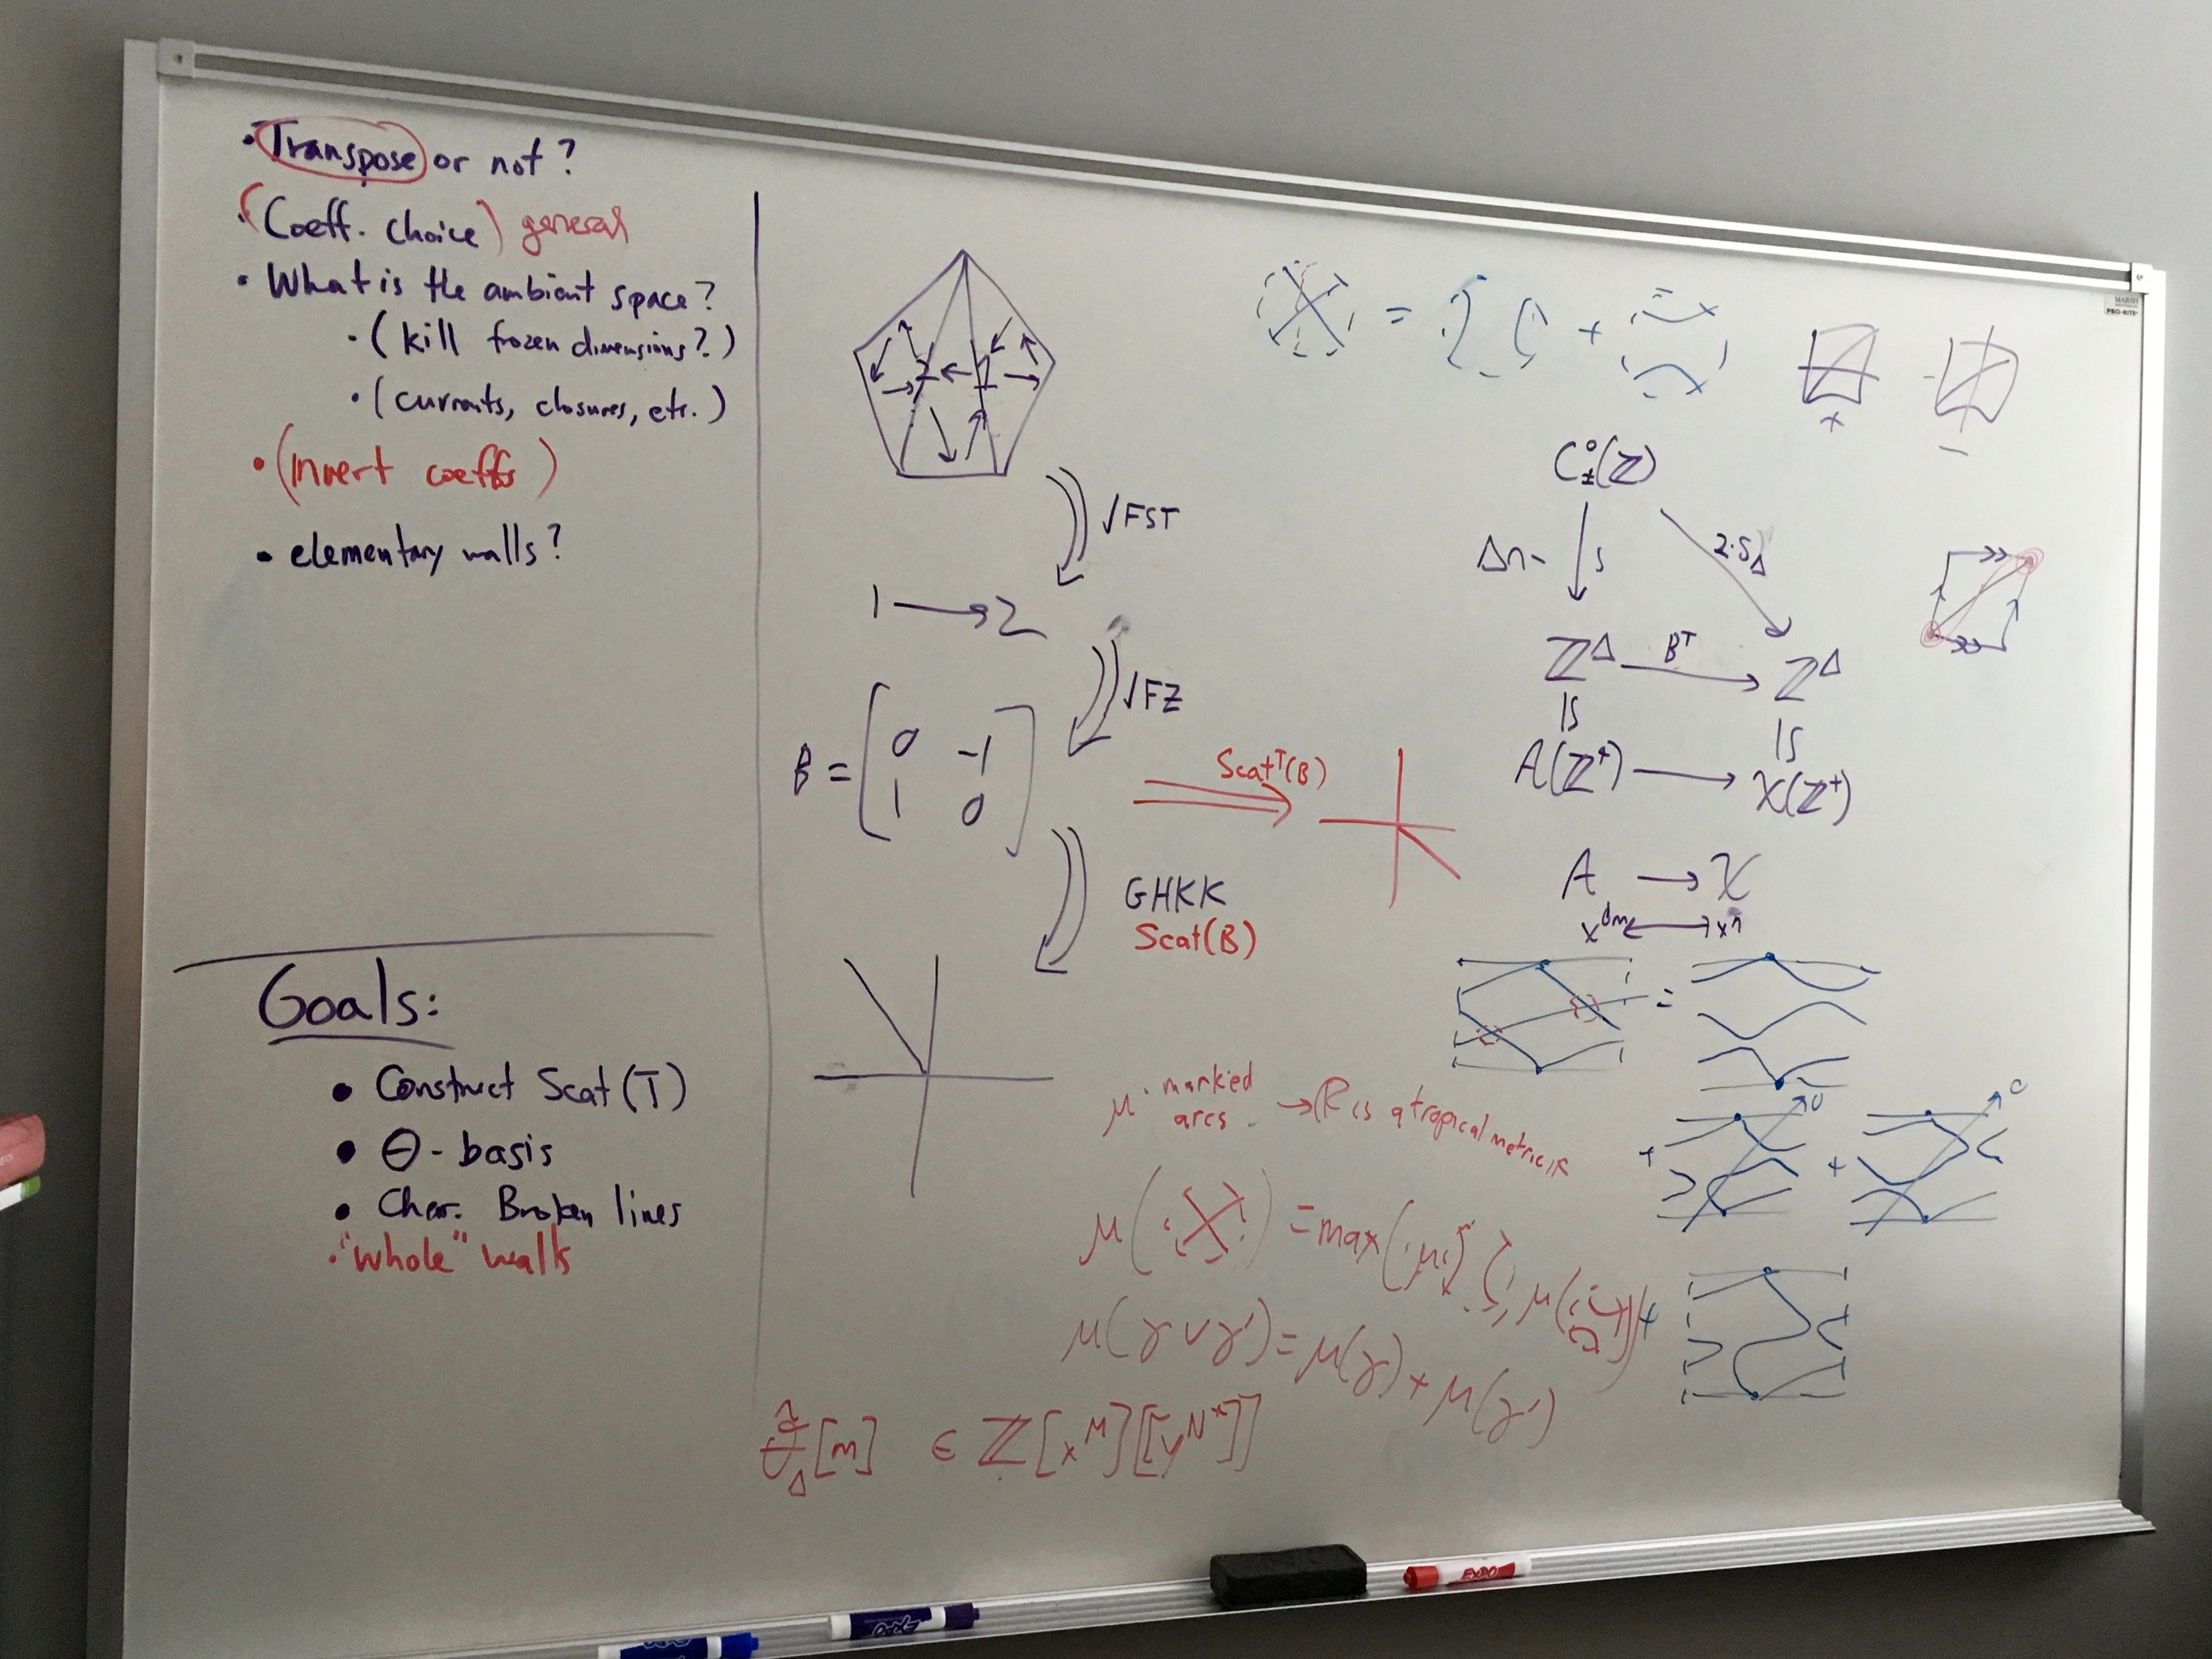 • Transpose or not?
• (Coeff. choice) general
• What is the ambient space?
• (kill frozen dimensions?)
• (currents, closures, etc.)
• (invert coeffs)
• elementary walls?
Goals:
• Construct Scat(T)
• Θ-basis
• Char. Broken lines
• "whole" walls
2 1
√FST
1 → 2
√FZ
B = [ 0 -1
1 0 ]
Scatᵀ(B)
GHKK
Scat(B)
= +
+ -
MARSH
PRO-RITE
C°±(ℤ)
Δn- S 2·S_Δ
ℤ^Δ Bᵀ → ℤ^Δ
A(ℤ⁺) → X(ℤ⁺)
A → X
=
+ +
+
μ: marked arcs → R is a tropical metric if
μ( ) = max(μ( ), μ( ))
μ(γ ∪ γ') = μ(γ) + μ(γ')
[m] ∈ ℤ[x^M][[y^N⁺]]
EXPO
EXPO